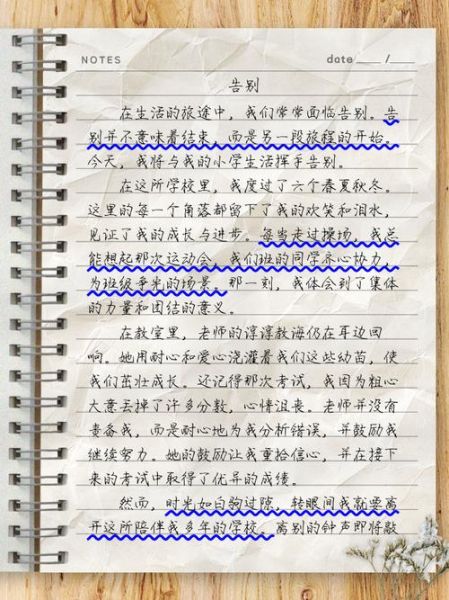 NOTES date /
告别
在生活的旅途中，我们常常面临告别。告
别并不意味着结束，而是另一段旅程的开始。
今天，我将与我的小学生活挥手告别。
在这所学校里，我度过了六个春夏秋冬。
这里的每一个角落都留下了我的欢笑和泪水，
见证了我的成长与进步。每当走过操场，我总
能想起那次运动会，我们班的同学齐心协力，
为班级争光的场景。那一刻，我体会到了集体
的力量和团结的意义。
在教室里，老师的谆谆教诲仍在耳边回
响。她用耐心和爱心浇灌着我们这些幼苗，使
我们茁壮成长。还记得那次考试，我因为粗心
大意丢掉了许多分数，心情沮丧。老师并没有
责备我，而是耐心地为我分析错误，并鼓励我
继续努力。她的鼓励让我重拾信心，并在接下
来的考试中取得了优异的成绩。
然而，时光如白驹过隙，转眼间我就要离
开这所陪伴我多年的学校。离别的钟声即将敲